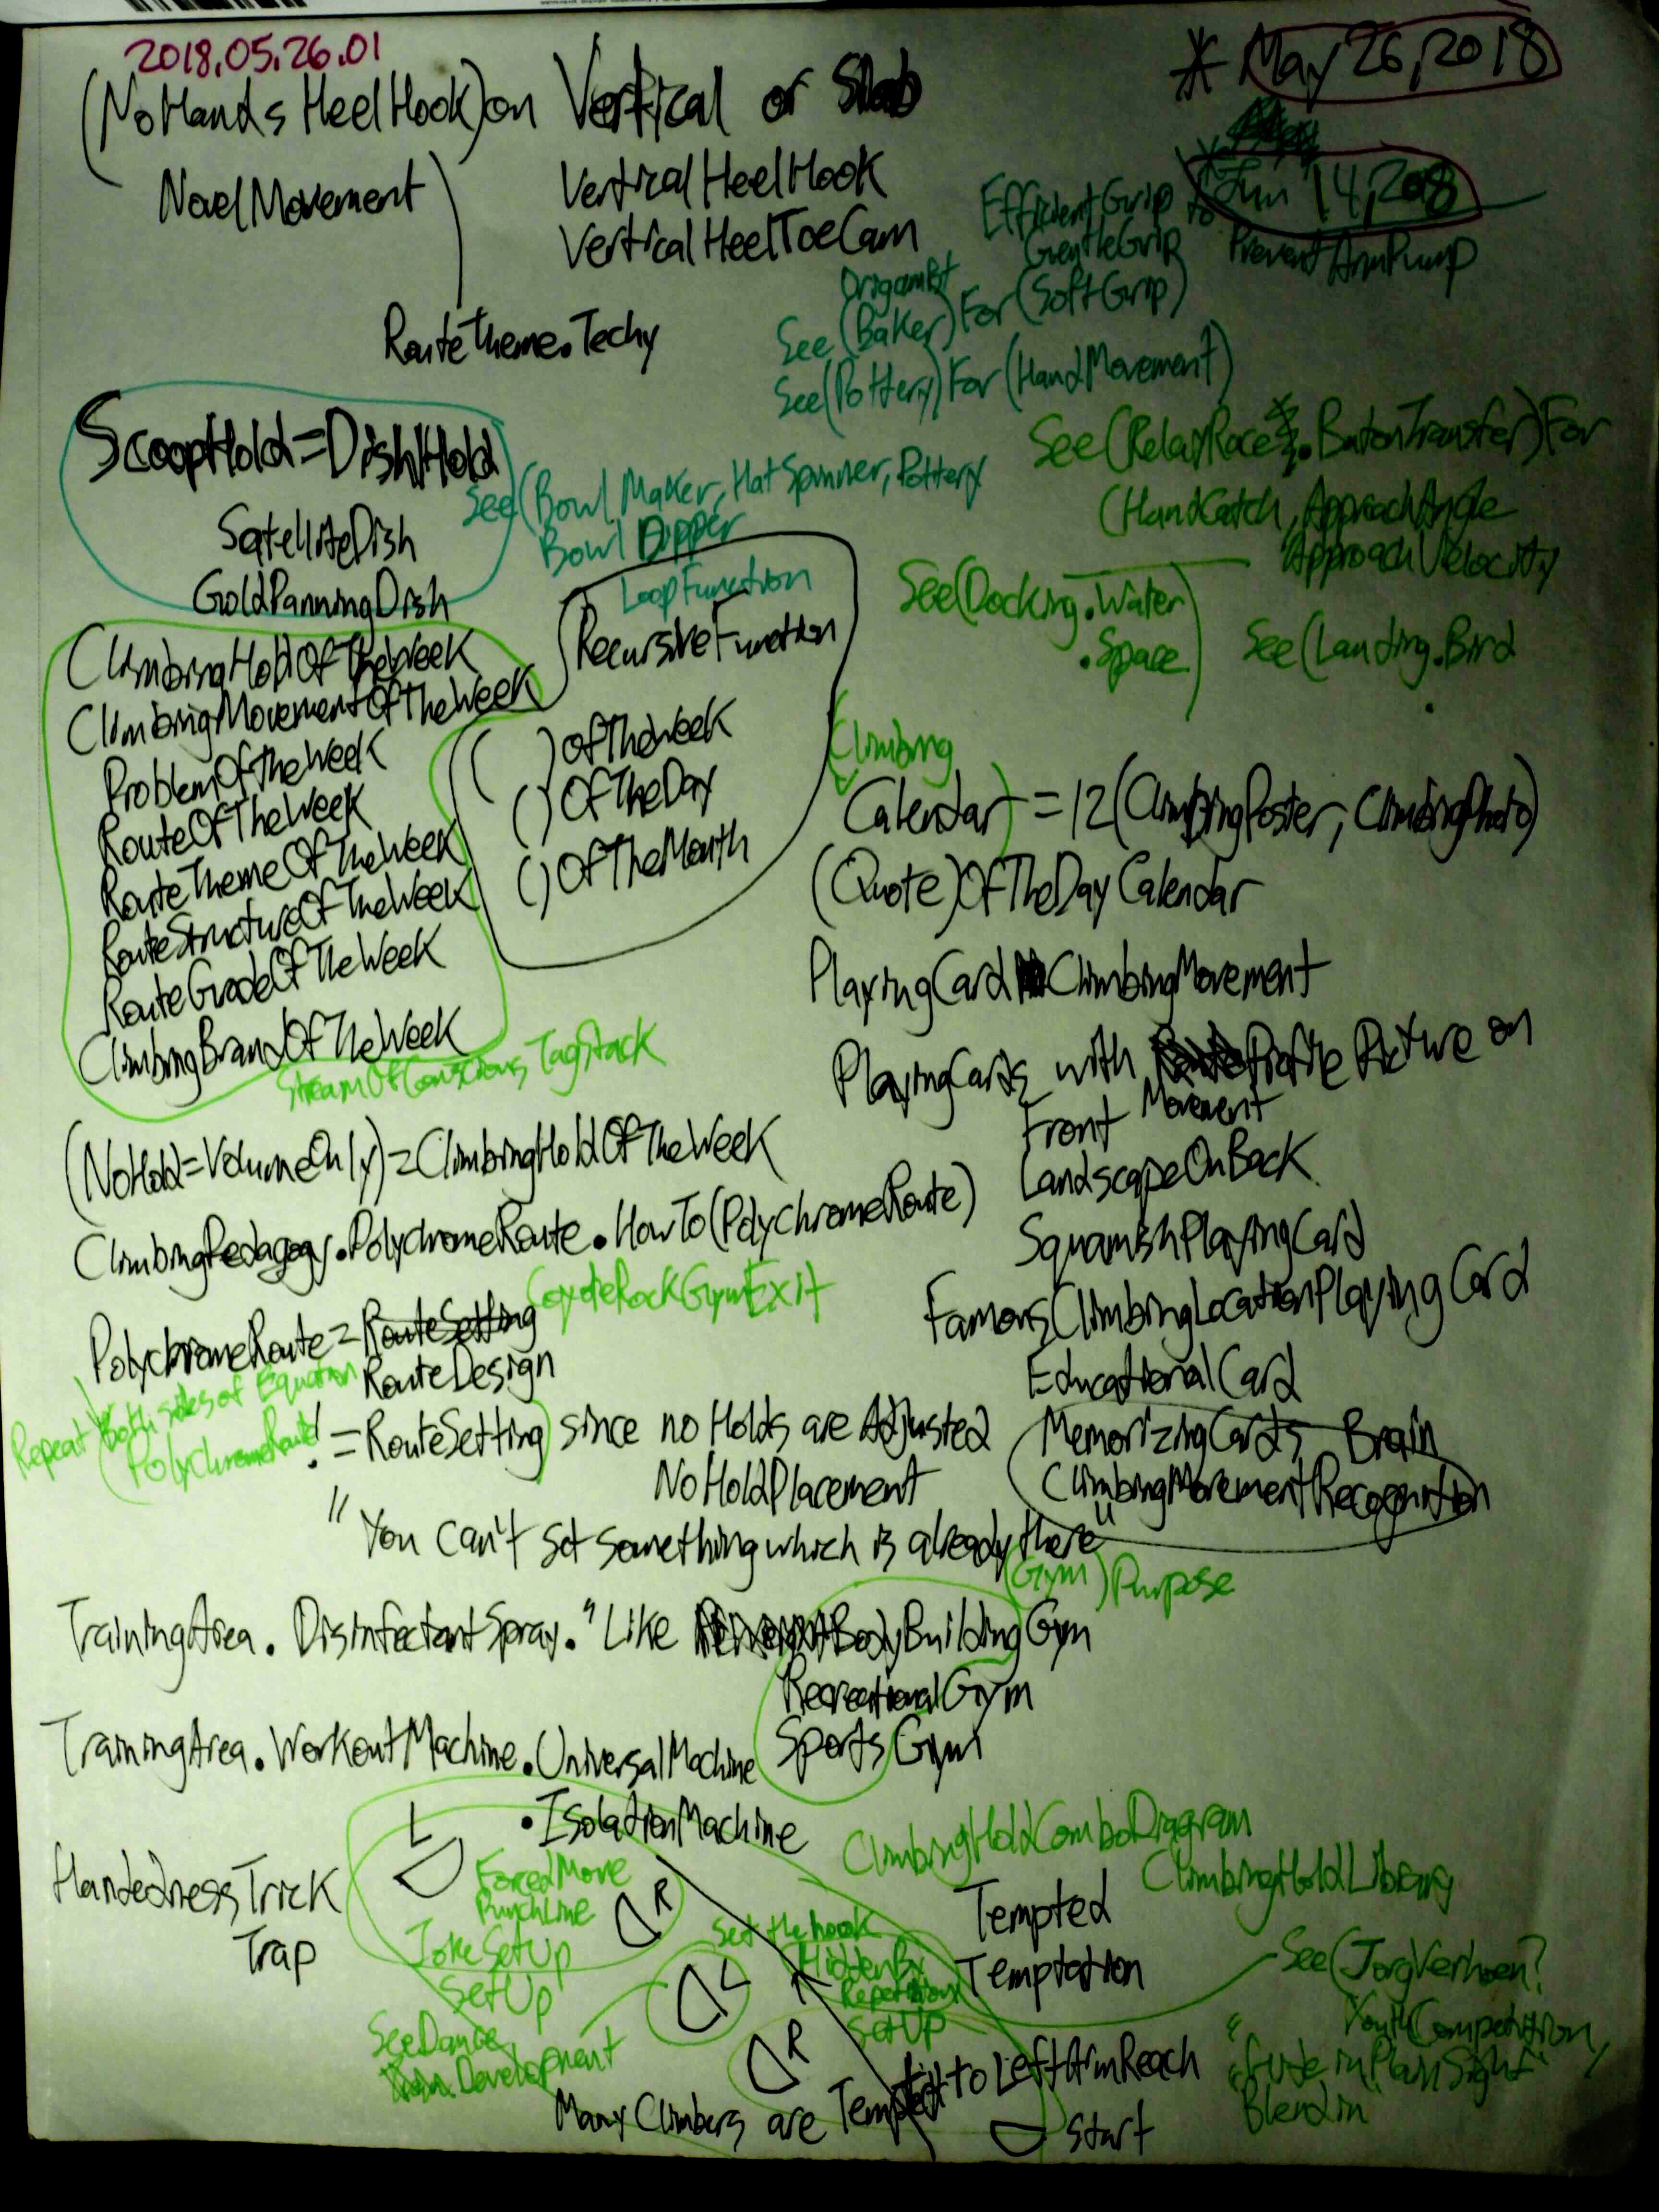 2018.05.26.01
* May 26, 2018
(NoHandsHeelHook) on Vertical or Slab
NovelMovement
VerticalHeelHook
VerticalHeelToeCam
Jun 14, 2018
EfficientGrip to
GentleGrip
PreventArmPump
RouteTheme.Techy
See (Baker) For (SoftGrip)
See (Pottery) For (HandMovement)
ScoopHold = DishHold
SatelliteDish
GoldPanningDish
See (Bowl Maker, Hat Spinner, Pottery
Bowl Dipper
See (RelayRace.BatonTransfer) For
(HandCatch, ApproachAngle
ApproachVelocity
See (Docking.Water
.Space)
See (Landing.Bird
LoopFunction
RecursiveFunction
( ) OfTheWeek
( ) OfTheDay
( ) OfTheMonth
ClimbingHoldOfTheWeek
ClimbingMovementOfTheWeek
ProblemOfTheWeek
RouteOfTheWeek
RouteThemeOfTheWeek
RouteStructureOfTheWeek
RouteGradeOfTheWeek
ClimbingBrandOfTheWeek
StreamOfConscious TagStack
(Climbing
Calendar) = 12 (ClimbingPoster, ClimbingPhoto)
(Quote)OfTheDayCalendar
PlayingCard ClimbingMovement
PlayingCards with Profile Picture on
Front Movement
LandscapeOnBack
SquamishPlayingCard
FamousClimbingLocationPlayingCard
EducationalCard
MemorizingCards, Brain
ClimbingMovementRecognition
(NoHold = VolumeOnly) = ClimbingHoldOfTheWeek
ClimbingPedagogy.PolychromeRoute.HowTo(PolychromeRoute)
CoyoteRockGymExit
PolychromeRoute = RouteSetting
RouteDesign
Repeat both sides of Equation
(PolychromeRoute != RouteSetting) since no Holds are Adjusted
NoHoldPlacement
"You can't set something which is already there"
(Gym) Purpose
TrainingArea.DisinfectantSpray. "Like BodyBuildingGym
RecreationalGym
SportsGym
TrainingArea.WorkoutMachine.UniversalMachine
.IsolationMachine
HandednessTrick
Trap
L
ForcedMove
PunchLine
R
JokeSetUp
SetUp
Set the hook
L
HiddenBy
Repetition
SetUp
R
ClimbingHoldComboDiagram
ClimbingHoldLibrary
Tempted
Temptation
See (JorgVerhoen?
YouthCompetition,
PlainSight"
Blend in
SeeDance
Development
Many Climbers are Tempted to LeftArmReach
Start